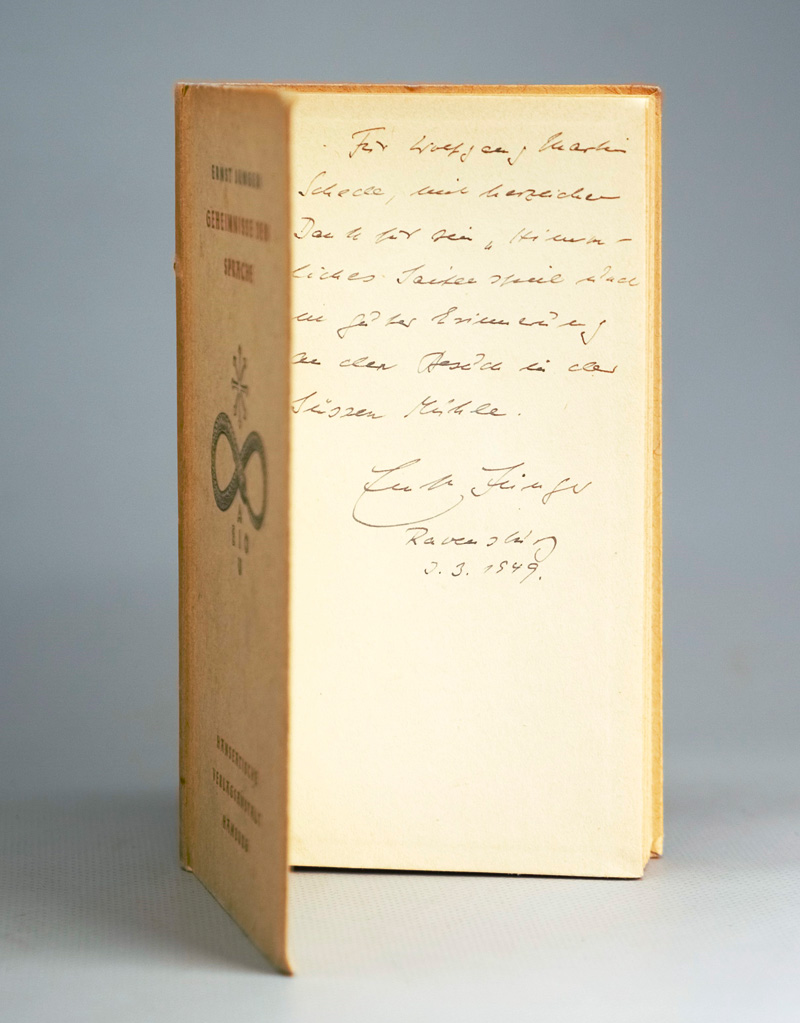 ERNST JÜNGER
GEHEIMNISSE DER
SPRACHE
HANSEATISCHE
VERLAGSANSTALT
HAMBURG
Für Wolfgang Martin
Schede, mit herzlichem
Dank für sein „Himm-
lisches Saitenspiel und
in guter Erinnerung
an den Besuch in der
Süssen Mühle.
Ernst Jünger
Ravensburg
3. 3. 1949.